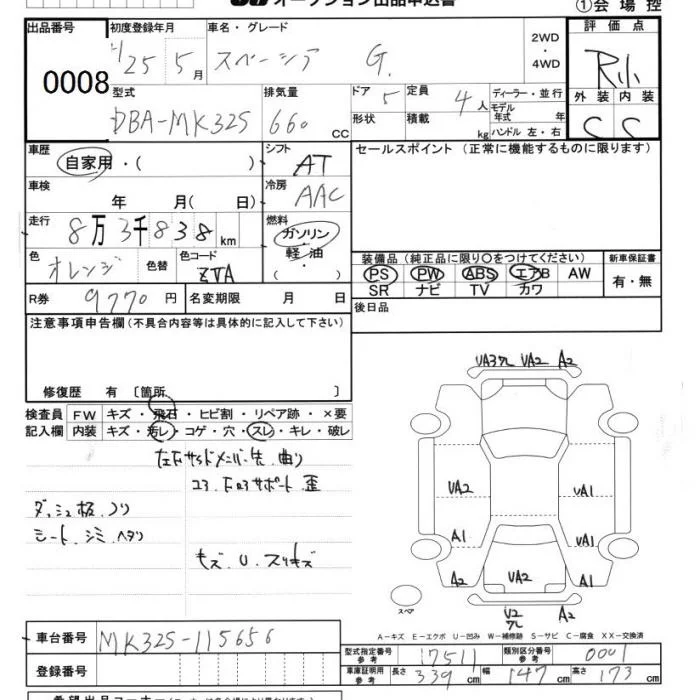 オークション出品申込書 ①会場控
出品番号 0008
初度登録年月 25 5月
車名・グレード スペーシア G.
2WD・4WD
評価点 R小
外装 内装
C C
型式 DBA-MK32S
排気量 660 CC
ドア 5 形状
定員 4人 積載 kg
ディーラー・並行
モデル年式 年
ハンドル 左・右
車歴 自家用・( )
シフト AT
セールスポイント(正常に機能するものに限ります)
車検 年 月( 日)
冷房 AAC
走行 8万3千838km
燃料 ガソリン 軽油 ( )
色 オレンジ 色替 色コード
装備品(純正品に限り〇をつけてください) 新車保証書
PS PW ABS エアB AW 有・無
SR ナビ TV カワ
R券 9770円 名変期限 月 日
後日品
注意事項申告欄(不具合内容等は具体的に記入して下さい)
修復歴 有 〔箇所 〕
検査員 FW キズ・飛石・ヒビ割・リペア跡・×要
記入欄 内装 キズ・汚レ・コゲ・穴・スレ・キレ・破レ
左右サイドメンバー先.曲り
コア.ロアサポート.歪
ダッシュ板.ノリ
シート.シミ.ヘタリ
キズ.U.スリキズ
VA3 VA2 A2
VA2 VA1
A1 VA1
A2 VA2 A1
V2 A2
スペア
A-キズ E-エクボ U-凹み W-補修跡 S-サビ C-腐食 XX-交換済
車台番号 MK32S-115656
型式指定番号 参考 17511 類別区分番号 参考 0001
登録番号
車庫証明用 参考 長さ 339cm 幅 147cm 高さ 173cm